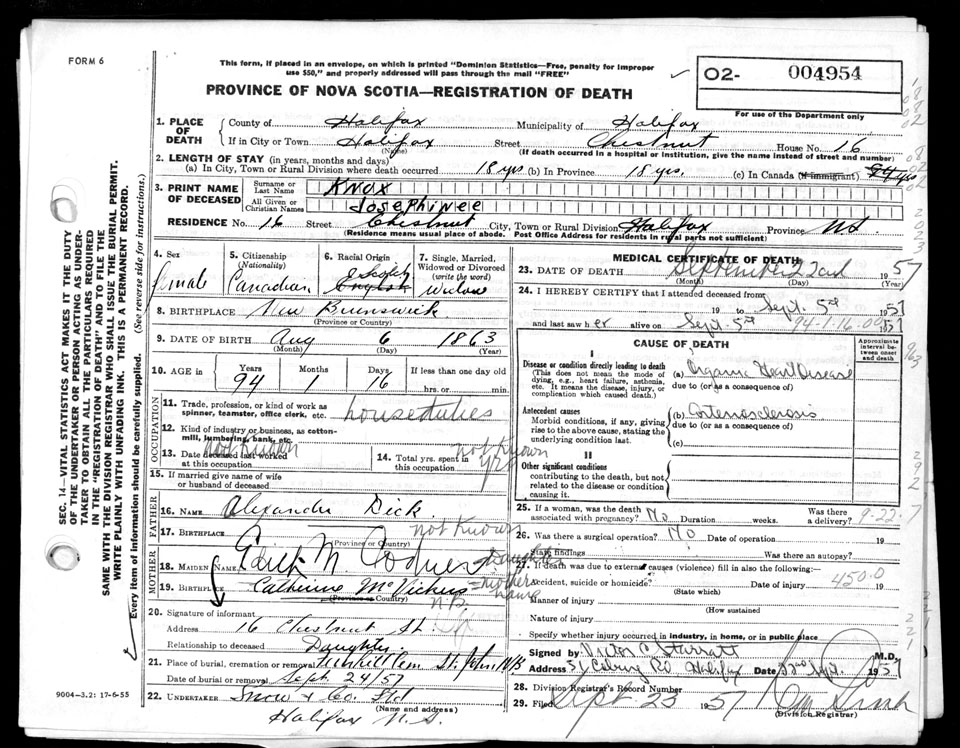 FORM 6
This form, if placed in an envelope, on which is printed "Dominion Statistics—Free, penalty for improper
use $50," and properly addressed will pass through the mail "FREE"
PROVINCE OF NOVA SCOTIA—REGISTRATION OF DEATH
02- 004954
For use of the Department only
1. PLACE OF DEATH { County of Halifax Municipality of Halifax
If in City or Town Halifax Street Chestnut House No. 16
(Name) (If death occurred in a hospital or institution, give the name instead of street and number)
2. LENGTH OF STAY (in years, months and days)
(a) In City, Town or Rural Division where death occurred 18 yrs (b) In Province 18 yrs. (c) In Canada (if immigrant) 94 yrs
3. PRINT NAME OF DECEASED { Surname or Last Name Knox
All Given or Christian Names Josephinee
RESIDENCE No. 16 Street Chestnut City, Town or Rural Division Halifax Province NS
(Residence means usual place of abode. Post Office Address for residents in rural parts not sufficient)
4. Sex female
5. Citizenship (Nationality) Canadian
6. Racial Origin Scotch English
7. Single, Married, Widowed or Divorced (write the word) Widow
8. BIRTHPLACE New Brunswick
(Province or Country)
9. DATE OF BIRTH Aug 6 1863
(Month) (Day) (Year)
10. AGE in { Years Months Days If less than one day old
94 1 16 hrs. or min.
OCCUPATION
11. Trade, profession, or kind of work as
spinner, teamster, office clerk, etc. house duties
12. Kind of industry or business, as cotton-
mill, lumbering, bank, etc.
13. Date deceased last worked
at this occupation not known
14. Total yrs. spent in
this occupation not known yrs
15. If married give name of wife
or husband of deceased
FATHER
16. NAME Alexander Dick
17. BIRTHPLACE not Known
(Province or Country)
MOTHER
18. MAIDEN NAME Edith M. Daughter
19. BIRTHPLACE Catherine McVickers mothers name
(Province or Country) N.B.
20. Signature of informant
Address 16 Chestnut St.
Relationship to deceased Daughter
21. Place of burial, cremation or removal Fernhill Cem St. John N/B
Date of burial or removal Sept. 24/57
22. UNDERTAKER Snow & Co. Ltd
(Name and address)
Halifax N.S.
MEDICAL CERTIFICATE OF DEATH
23. DATE OF DEATH September 22nd 1957
(Month) (Day) (Year)
24. I HEREBY CERTIFY that I attended deceased from
19 to Sept. 5th 1957
and last saw her alive on Sept. 5th 94-1-16-00 1957
CAUSE OF DEATH
Approximate interval between onset and death
I
Disease or condition directly leading to death
(This does not mean the mode of
dying, e.g., heart failure, asthenia,
etc. It means the disease, injury, or
complication which caused death.)
(a) Organic Heart Disease
due to (or as a consequence of)
Antecedent causes
Morbid conditions, if any, giving
rise to the above cause, stating the
underlying condition last.
(b) Arteriosclerosis
due to (or as a consequence of)
(c)
II
Other significant conditions
contributing to the death, but not
related to the disease or condition
causing it.
25. If a woman, was the death
associated with pregnancy? No Duration weeks. Was there a delivery? 9-22-7
26. Was there a surgical operation? No Date of operation 19
State findings Was there an autopsy?
27. If death was due to external causes (violence) fill in also the following:
Accident, suicide or homicide? Date of injury 19
(State which) 450.0
Manner of injury
(How sustained
Nature of injury
Specify whether injury occurred in industry, in home, or in public place
Signed by Victor C. Starratt M.D.
Address 51 Coburg Rd Halifax Date 22 Sept. 1957
28. Division Registrar's Record Number
29. Filed Sept. 23 1957
(Division Registrar)
9004—3.2: 17-6-55
SEC. 14—VITAL STATISTICS ACT MAKES IT THE DUTY
OF THE UNDERTAKER OR PERSON ACTING AS UNDER-
TAKER TO OBTAIN ALL THE PARTICULARS REQUIRED
IN THE "REGISTRATION OF DEATH" AND TO FILE THE
SAME WITH THE DIVISION REGISTRAR WHO SHALL ISSUE THE BURIAL PERMIT.
WRITE PLAINLY WITH UNFADING INK. THIS IS A PERMANENT RECORD.
Every item of information should be carefully supplied. (See reverse side for instructions.)